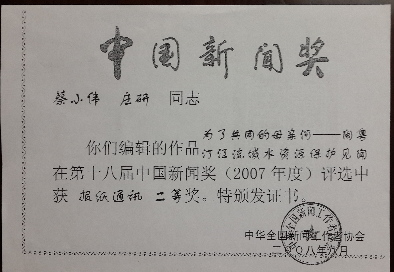 中国新闻奖
蔡小伟 庄研 同志
你们编辑的作品 为了共同的母亲河——闽粤
汀江流域水资源保护见闻
在第十八届中国新闻奖(2007年度)评选中
获 报纸通讯 二等奖。特颁发证书。
中华全国新闻工作者协会
二〇〇八年九月